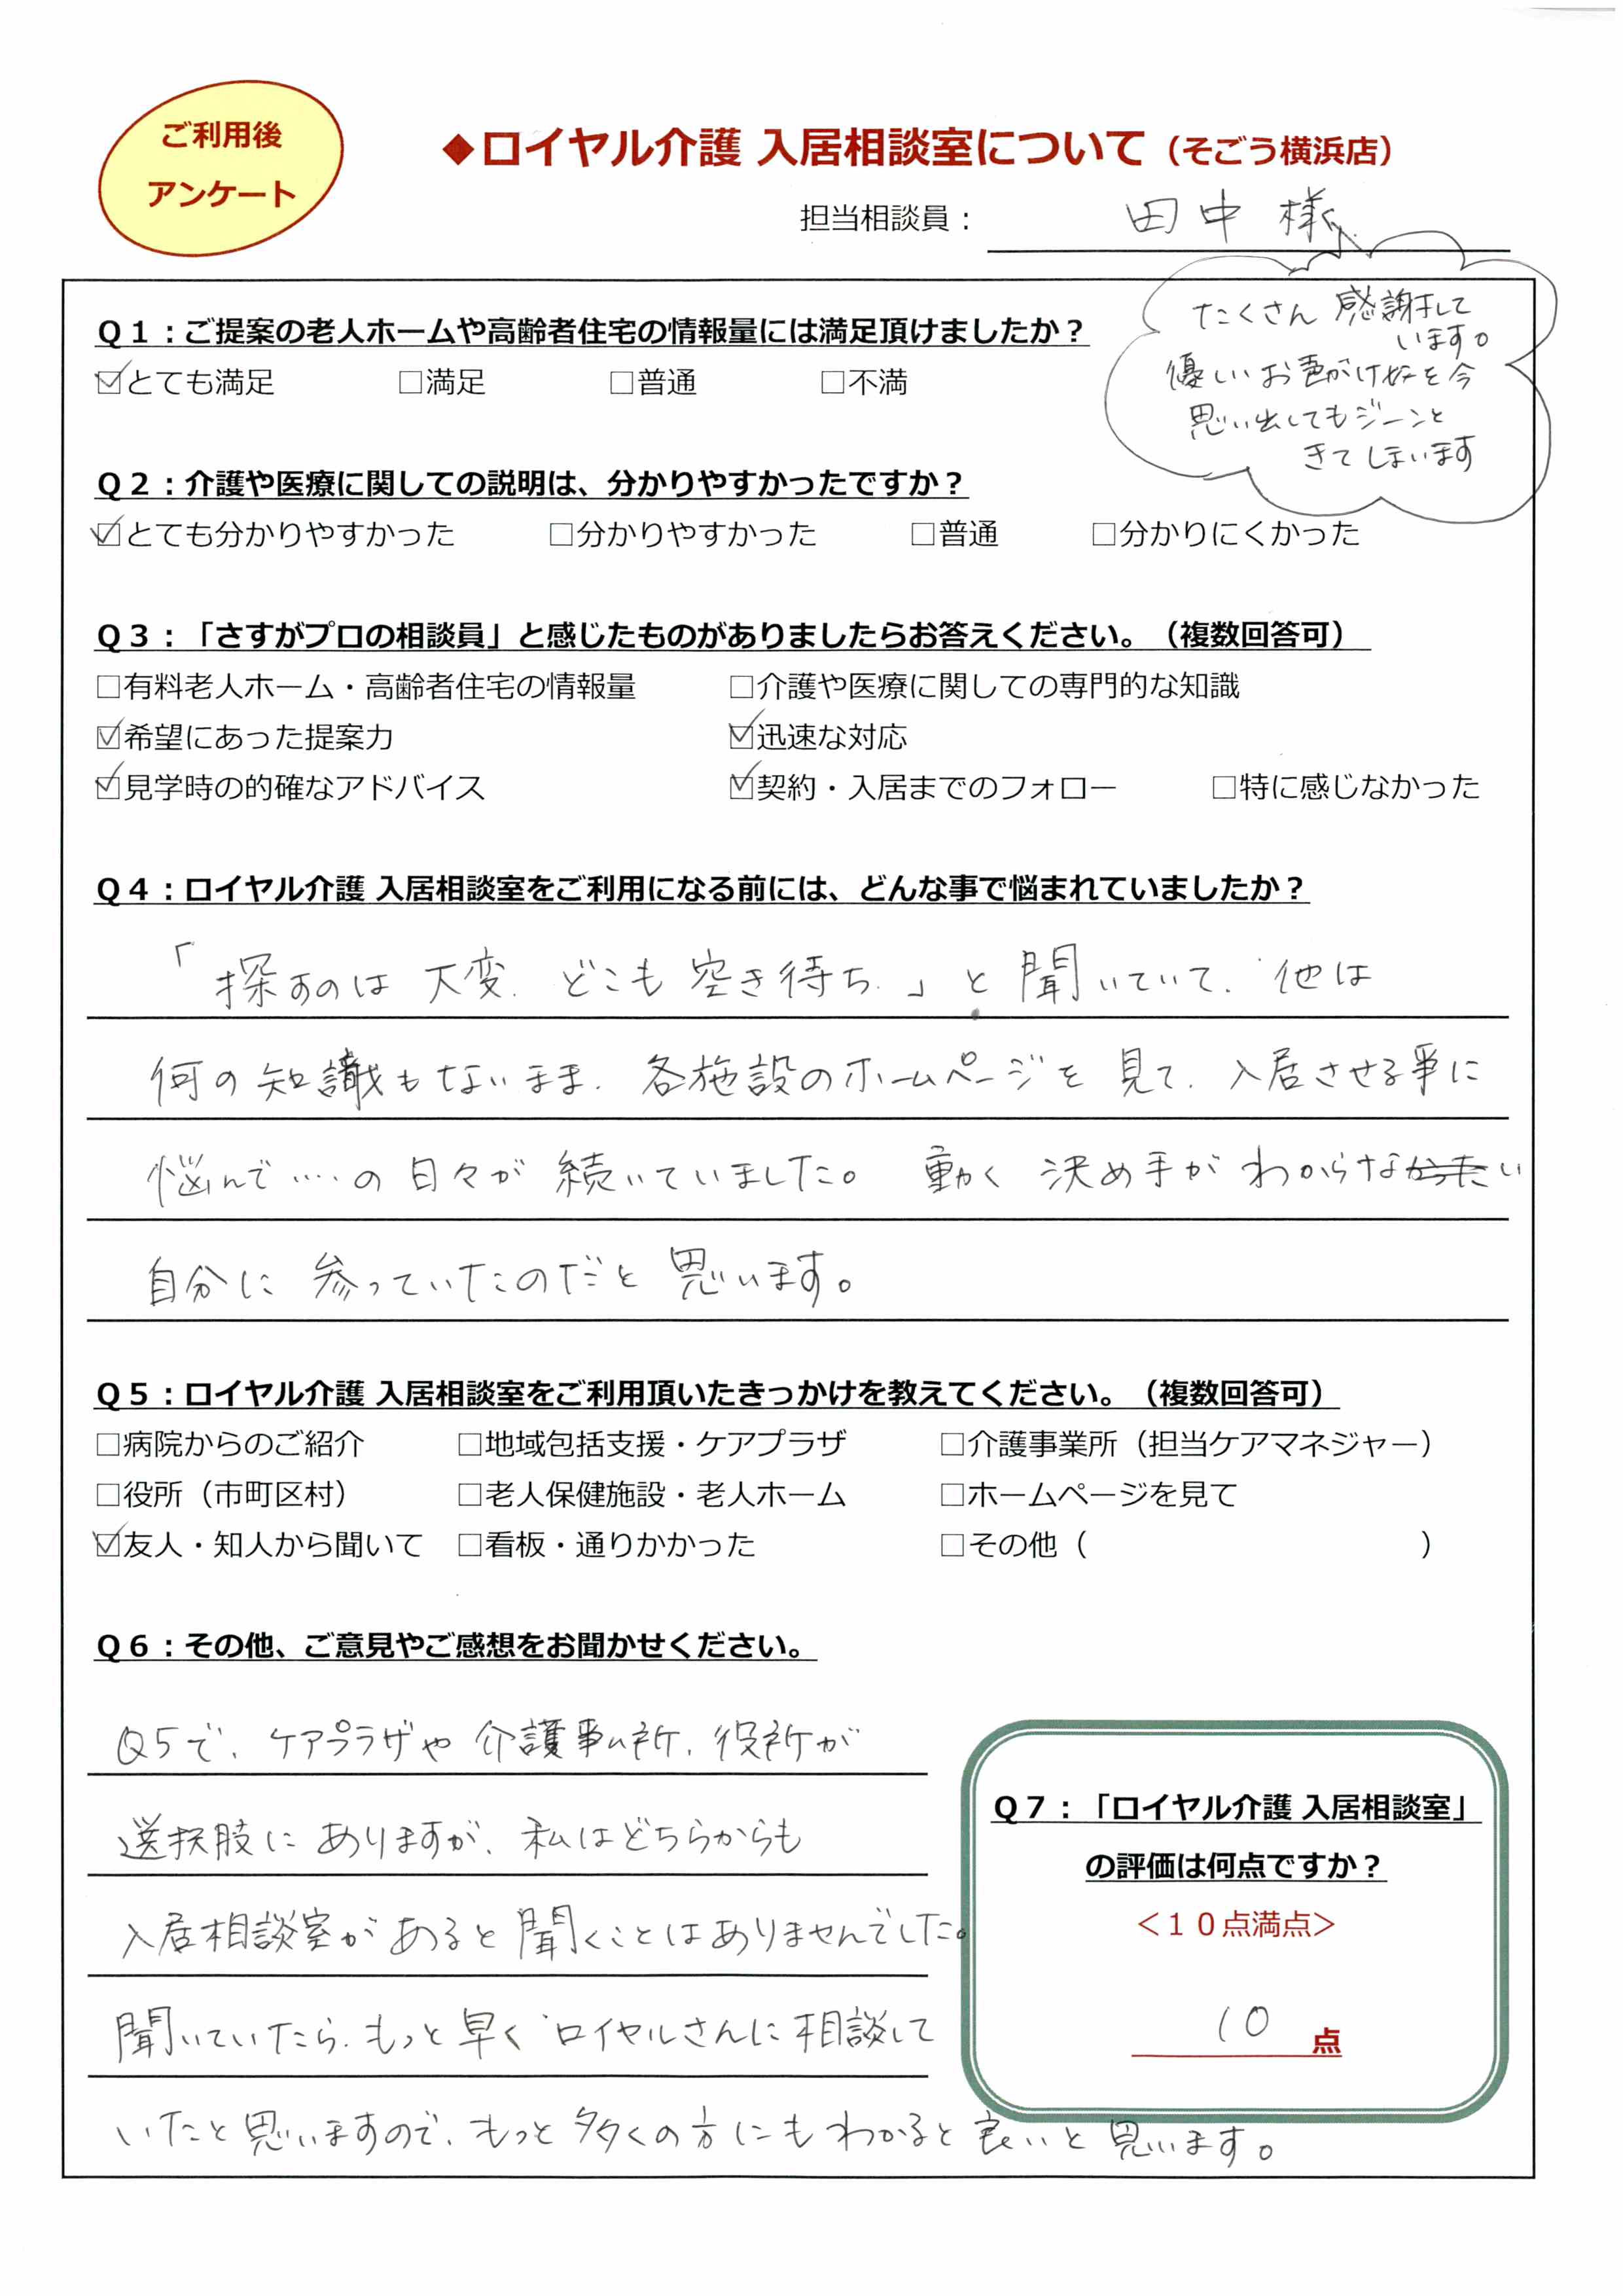 ご利用後
アンケート
◆ロイヤル介護 入居相談室について（そごう横浜店）
担当相談員： 田中 様
たくさん 感謝して
います。
優しいお声がけ等を今
思い出してもジーンと
きてしまいます
Ｑ１：ご提案の老人ホームや高齢者住宅の情報量には満足頂けましたか？
☑とても満足 □満足 □普通 □不満
Ｑ２：介護や医療に関しての説明は、分かりやすかったですか？
☑とても分かりやすかった □分かりやすかった □普通 □分かりにくかった
Ｑ３：「さすがプロの相談員」と感じたものがありましたらお答えください。（複数回答可）
□有料老人ホーム・高齢者住宅の情報量 □介護や医療に関しての専門的な知識
☑希望にあった提案力 ☑迅速な対応
☑見学時の的確なアドバイス ☑契約・入居までのフォロー □特に感じなかった
Ｑ４：ロイヤル介護 入居相談室をご利用になる前には、どんな事で悩まれていましたか？
「探すのは 大変、どこも 空き待ち、」と 聞いていて、他は
何の知識もないまま、各施設のホームページを見て、入居させる事に
悩んで‥‥の 日々が 続いていました。 動く 決め手が わからない
自分に 参っていたのだと 思います。
Ｑ５：ロイヤル介護 入居相談室をご利用頂いたきっかけを教えてください。（複数回答可）
□病院からのご紹介 □地域包括支援・ケアプラザ □介護事業所（担当ケアマネジャー）
□役所（市町区村） □老人保健施設・老人ホーム □ホームページを見て
☑友人・知人から聞いて □看板・通りかかった □その他（ ）
Ｑ６：その他、ご意見やご感想をお聞かせください。
Q5で、ケアプラザや 介護事ム所、役所が
選択肢に ありますが、私はどちらからも
入居相談室が あると 聞くことはありませんでした。
聞いていたら、もっと 早く ロイヤルさんに 相談して
いたと 思いますので、もっと 多くの 方にも わかると 良いと 思います。
Ｑ７：「ロイヤル介護 入居相談室」
の評価は何点ですか？
＜１０点満点＞
10 点